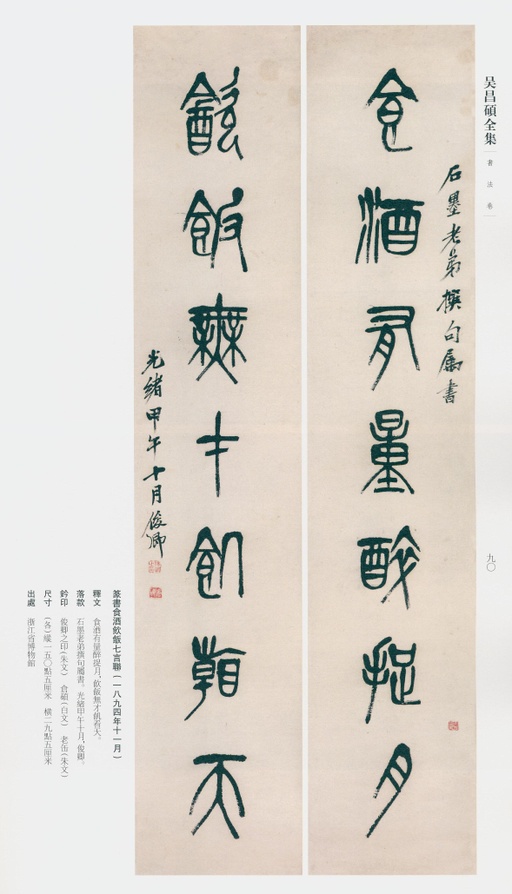 吴昌碩全集 書法卷
九〇
石墨老弟撰句属書
食酒有量醉捉月
飲飯無才飢看天
光緒甲午十月俊卿
篆書食酒飲飯七言聯(一八九四年十一月)
釋文 食酒有量醉捉月,飲飯無才飢看天。
落款 石墨老弟撰句屬書。光緒甲午十月,俊卿。
鈐印 俊卿之印(朱文) 倉碩(白文) 老缶(朱文)
尺寸 (各)縱一五〇點五厘米 橫二九點五厘米
出處 浙江省博物館